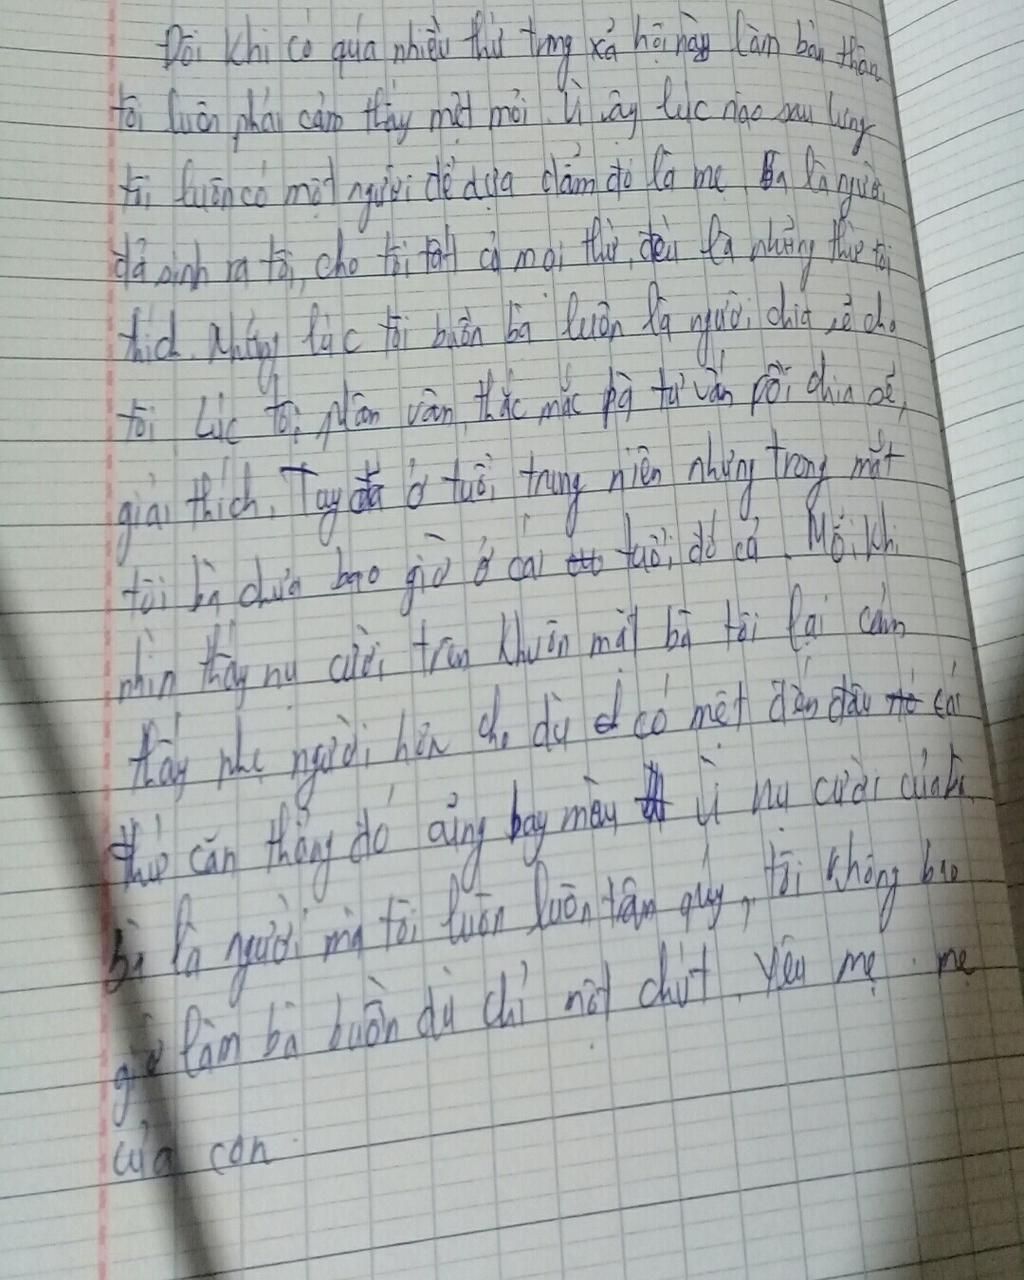 Đôi khi có quá nhiều thứ trong xả hội này làm bản thân
tôi luôn phải cảm thấy mệt mỏi. Vì vậy lúc nào sau lưng
tôi luôn có một người để dựa dẩm đó là mẹ. Bà là người
đả sinh ra tôi, cho tôi tất cả mọi thứ, đều là những thứ tôi
thích. Những lúc tôi buồn bà luôn là người chia sẻ cho
tôi Lúc tôi phân vân, thắc mắc bà tư vấn rồi chia sẻ,
giải thích. Tay đã ở tuổi trung niên nhưng trong mắt
tôi bà chưa bao giờ ở cái tuổi đó cả. Mỗi khi
nhìn thấy nụ cười trên khuôn mặt bà tôi lại cảm
thấy nhẹ người hơn cho dù có mệt đến đâu cái
thứ căn thẳng đó củng bay mầu vì nụ cười của bà
Bà là người mà tôi luôn luôn trân quý, tôi không bao
giờ làm bà buồn dù chỉ một chút. Yêu mẹ. mẹ
của con.